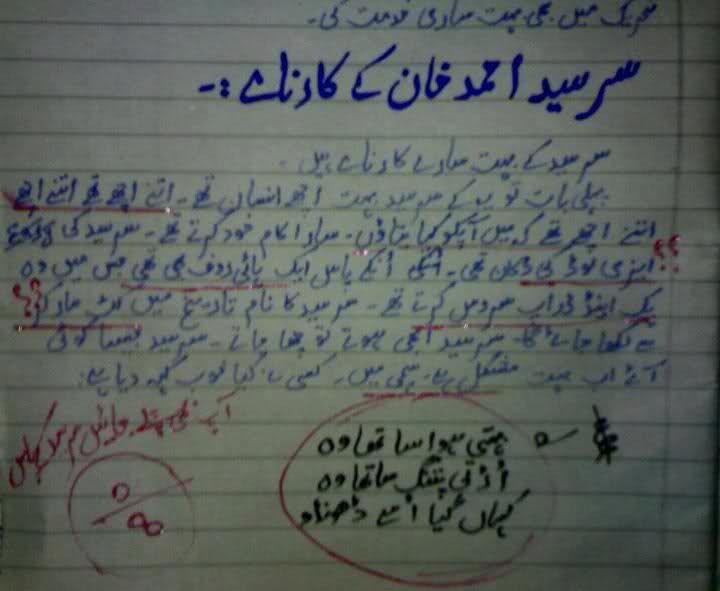 تحریک میں بھی بہت ساری خدمت کی۔
سر سید احمد خان کے کارنامے :۔
سر سید کے بہت سارے کارنامے ہیں۔
پہلی بات تو یہ کے سر سید بہت اچھے انسان تھے۔ اتنے اچھے تھے اتنے اچھے
اتنے اچھے تھے کہ میں آپکو کیا بتاؤں۔ سارا کام خود کرتے تھے۔ سر سید کی
اینرجی فوڈ کی دکان تھی۔ انکے پاس ایک ہائی روف بھی تھی جس میں وہ ؟؟
پک اینڈ ڈراپ سروس کرتے تھے۔ سر سید کا نام تاریخ میں مار کر ؟؟
سے لکھا جائے گا۔ سر سید ابھی ہوتے تو چھا جاتے۔ سر سید جیسا کوئی
آئے اب بہت مشکل ہے۔ سچی میں۔ کسی نے کیا خوب کہہ دیا ہے:
آپ
بہتی ہوا سا تھا وہ
اڑتی پتنگ سا تھا وہ
کہاں گیا اسے ڈھنڈو
0
/